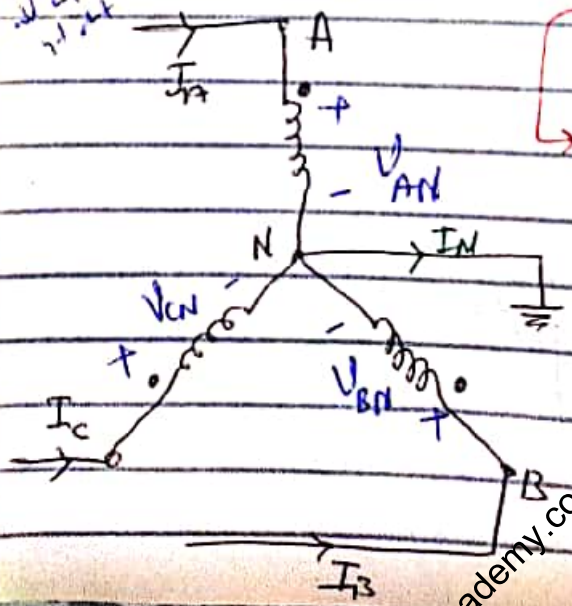 A
I_A
+
V_AN
-
N
I_N
-
V_CN
-
+
V_BN
+
I_C
B
I_B
ademy.co